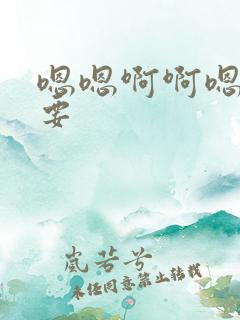 嗯嗯啊啊嗯
要
岚若兮
未经同意禁止转载